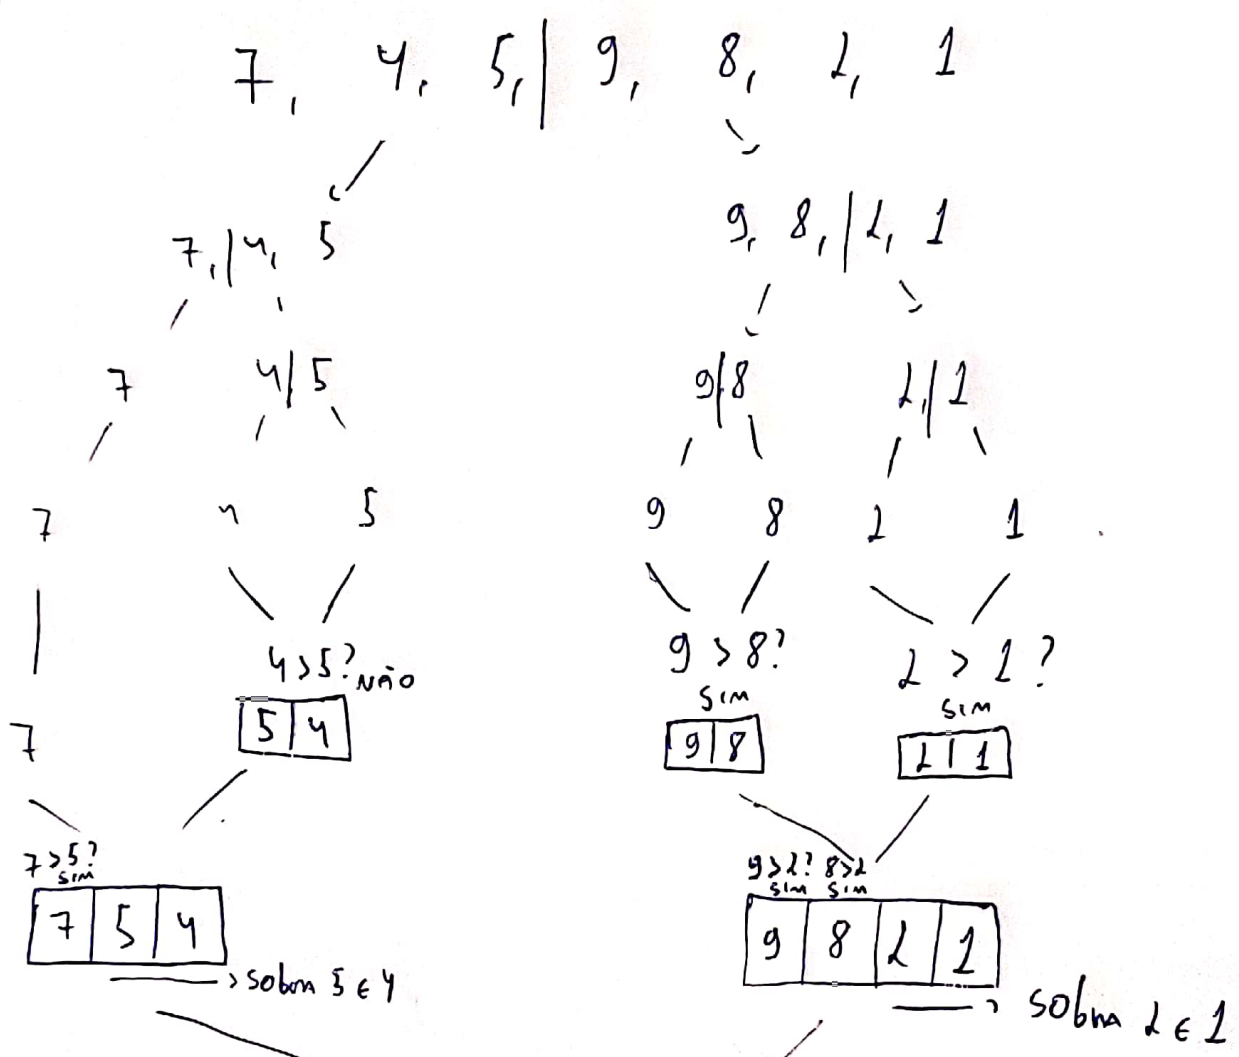 7, 4, 5,| 9, 8, 2, 1
7,|4, 5 9, 8,|2, 1
7 4|5 9|8 2,|1
7 4 5 9 8 2 1
4>5? NÃO 9 > 8? SIM 2 > 1? SIM
7 5|4 9|8 2|1
7>5? SIM 9>2? SIM 8>2 SIM
7|5|4 9|8|2|1
sobra 5 E 4 sobra 2 E 1